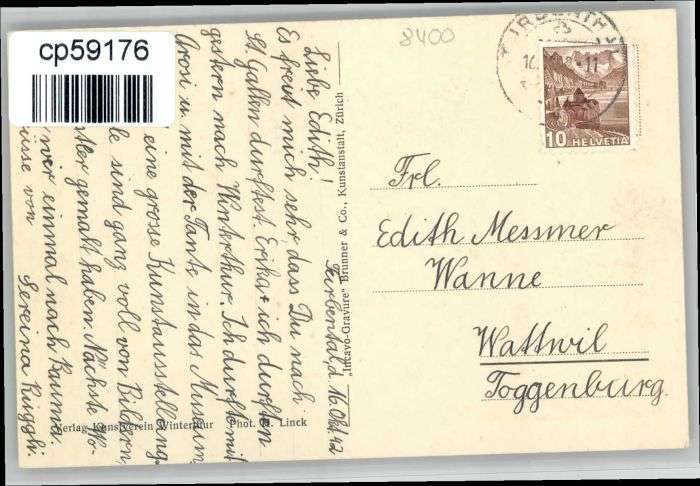 cp59176
8400
10 HELVETIA
Turbental, d. 16. Okt. 42
Liebe Edith!
Es freut mich sehr, dass Du nach
St. Gallen durftest. Erika + ich durften
gestern nach Winterthur. Ich durfte mit
Arosi u. mit der Tante in das Museum
eine grosse Kunstausstellung.
sind ganz voll von Bildern,
gemalt haben. Nächste Wo-
einmal nach Bauma.
von Sereina Ruggli.
"Intavo-Gravure" Brunner & Co., Kunstanstalt, Zürich
Verlag Kunstverein Winterthur Phot. H. Linck
Frl.
Edith Messmer
Wanne
Wattwil
Toggenburg.